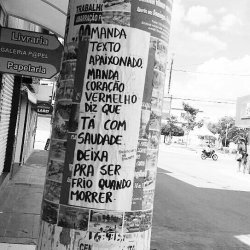 TRABALHO
Livraria
GALERIA PAPEL
Papelaria
MANDA
TEXTO
APAIXONADO.
MANDA
CORAÇÃO
VERMELHO
DIZ QUE
TÁ COM
SAUDADE.
DEIXA
PRA SER
FRIO QUANDO
MORRER.